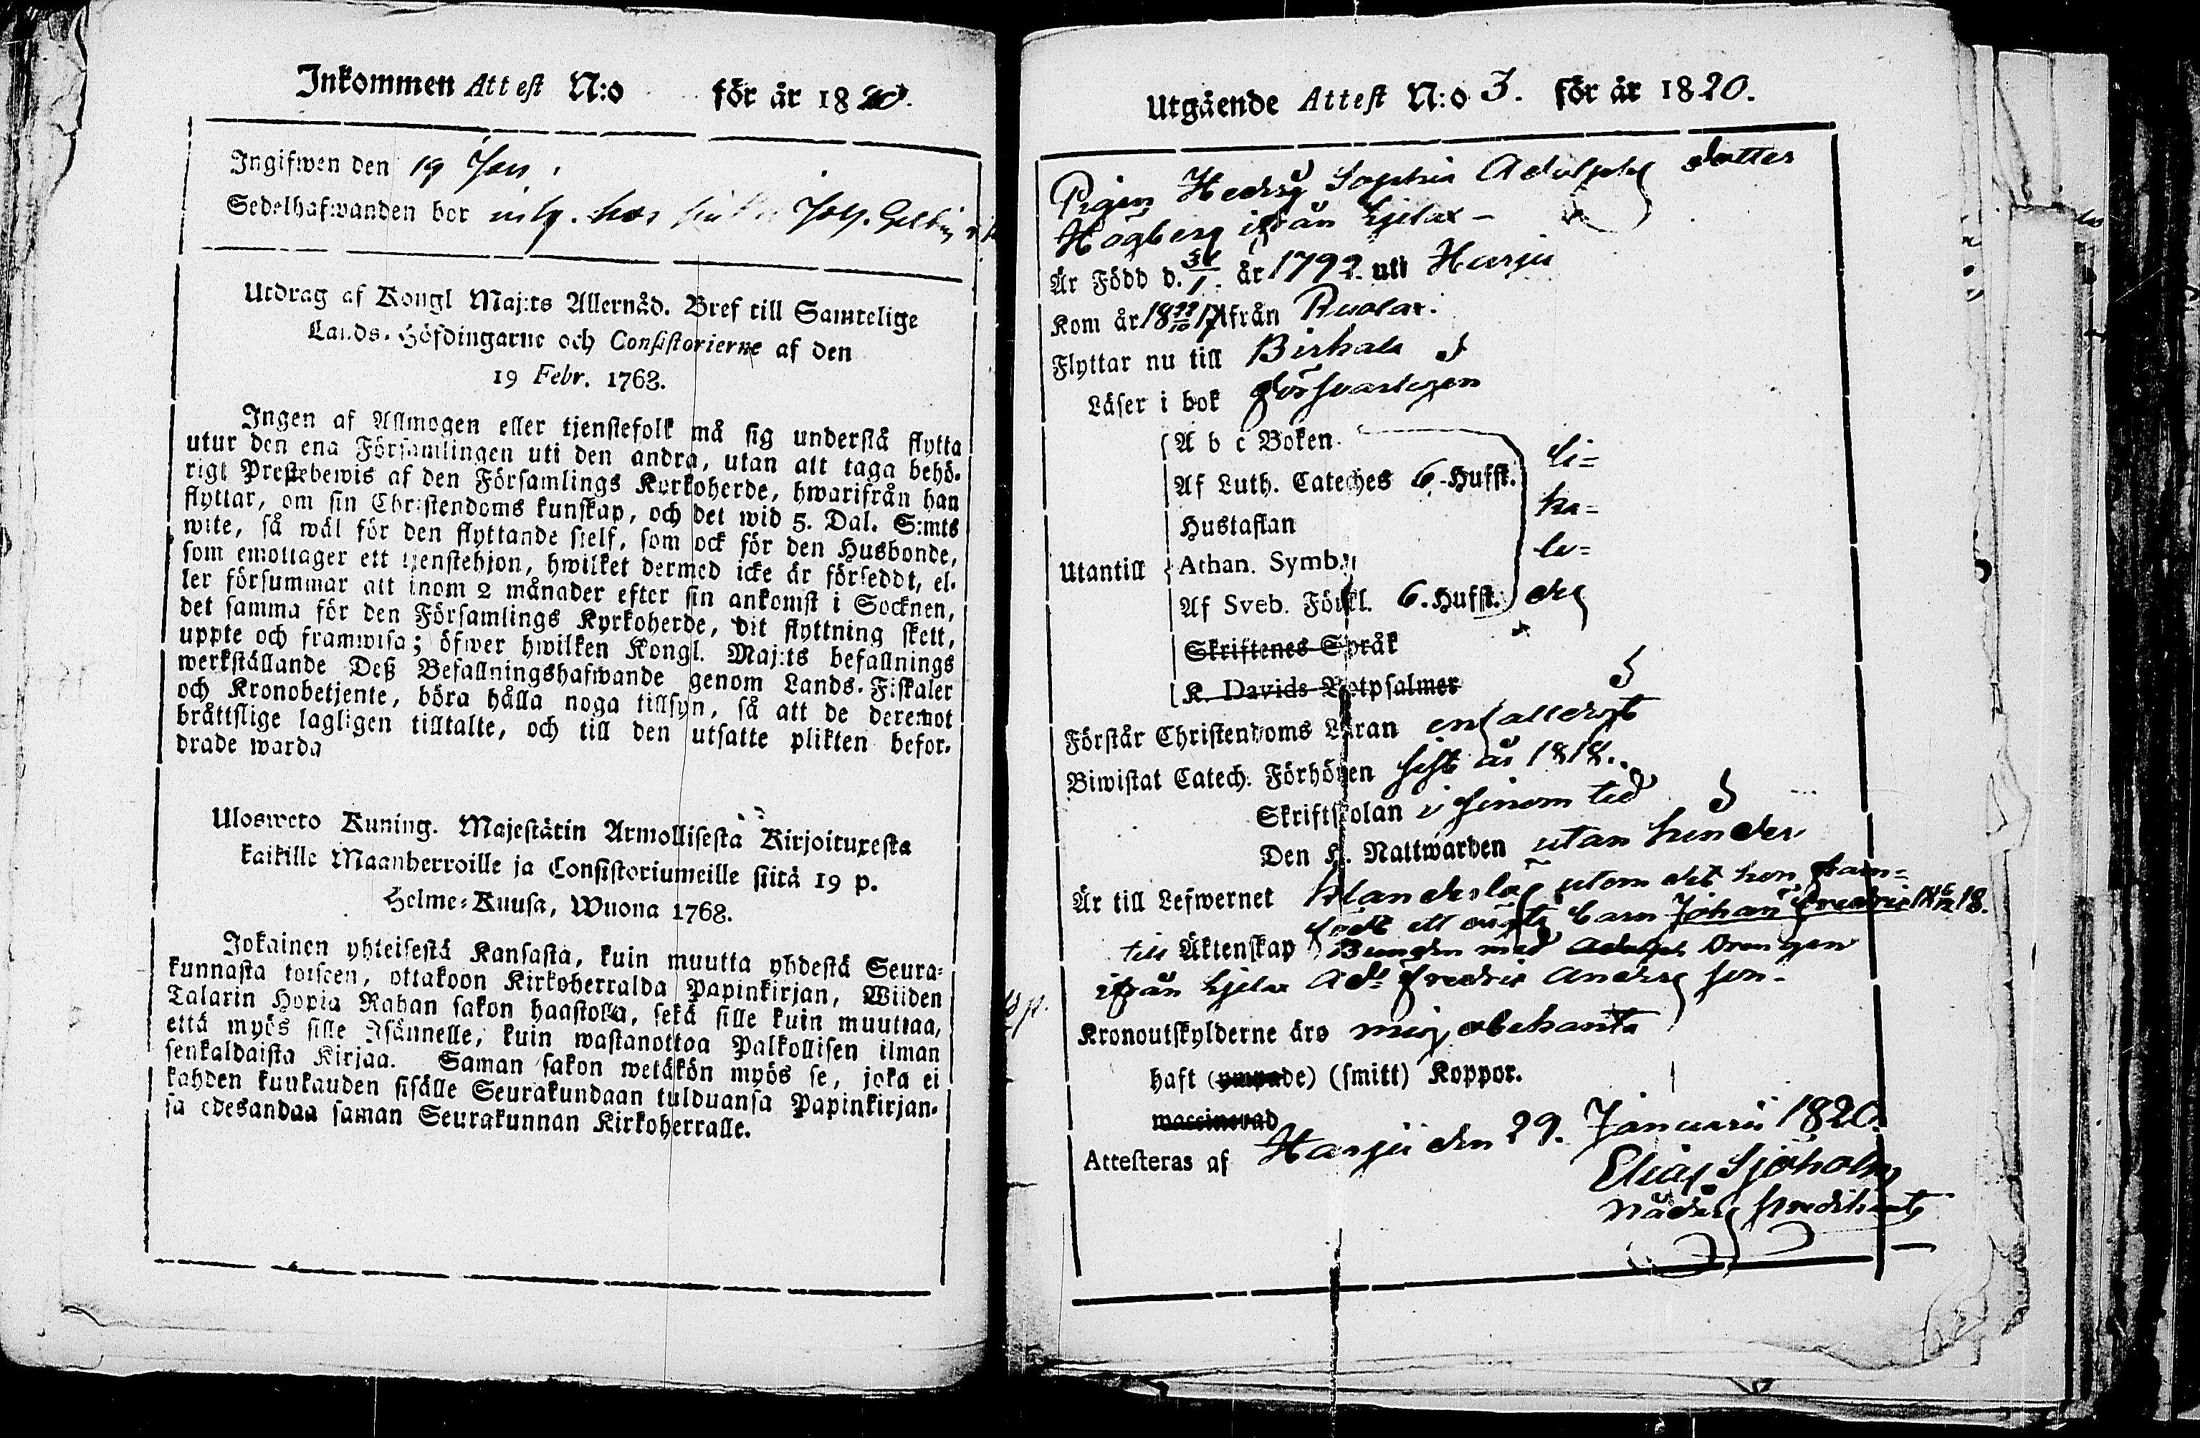 Inkommen Attest N:o för år 1820.
Ingifwen den 19
Sedelhafwanden bor hos Joh.
Utdrag af Kongl Maj:ts Allernåd. Bref till Samtelige
Lands-Höfdingarne och Consistorierne af den
19 Febr. 1768.
Ingen af Allmogen eller tjenstefolk må sig understå flytta
utur den ena Församlingen uti den andra, utan att taga behö-
rigt Prestebewis af den Församlings Kyrkoherde, hwarifrån han
flyttar, om sin Christendoms kunskap, och det wid 5. Dal. S:mts
wite, så wäl för den flyttande sielf, som ock för den Husbonde,
som emottager ett tjenstehjon, hwilket dermed icke är försedt, el-
ler försummar att inom 2 månader efter sin ankomst i Socknen,
det samma för den Församlings Kyrkoherde, dit flyttning skett,
uppte och framwisa; öfwer hwilken Kongl. Maj:ts befallnings
werkställande Deß Befallningshafwande genom Lands-Fiskaler
och Kronobetjente, böra hålla noga tillsyn, så att de deremot
bråttslige lagligen tilltalte, och till den utsatte plikten befor-
drade warda
Ulosweto Kuning. Majestätin Armollisesta Kirjoituxesta
kaikille Maanherroille ja Consistoriumeille siitä 19 p.
Helme-Kuusa, Wuona 1768.
Jokainen yhteisestä Kansasta, kuin muutta yhdestä Seura-
kunnasta toiseen, ottakoon Kirkoherralda Papinkirjan, Wiiden
Talarin Hopia Rahan sakon haastolla, sekä sille kuin muuttaa,
että myös sille Isännelle, kuin wastanottaa Palkollisen ilman
senkaldaista Kirjaa. Saman sakon wetäkön myös se, joka ei
kahden kuukauden sisälle Seurakundaan tulduansa Papinkirjan-
sa edesandaa saman Seurakunnan Kirkoherralle.
Utgående Attest N:o 3. för år 1820.
Pigan Hedvig Sophia Adolphs dotter
Högberg ifrån Kjelax
Är Född d. 31/1. år 1792 uti Harju
Kom år 18 17 från Ruolax.
Flyttar nu till Birkala
Läser i bok försvarligen
A b c Boken.
Af Luth. Cateches 6-Hufst.
Hustaflan
Utantill Athan. Symb.
Af Sveb. Förkl. 6. Hufst.
li-
ka-
le-
des
Skriftenes Språk
K. Davids Botpsalmer
Förstår Christendoms Läran enfalldigt
Biwistat Catech. Förhören sist år 1818.
Skriftskolan i sinom tid
Den H. Nattwarden utan hinder
Är till Lefwernet klanderlös utom det hon fram-
födt ett oägta barn Johan Fredric 18 6/12 18.
till Äktenskap Bunden med Adolph Drengen
ifrån Kjelax Ad: Fredric Anders son.
Kronoutskylderne äro mig obekanta
haft (ympade) (smitt) Koppor.
waccinerad
Attesteras af Harju den 29. Januarii 1820.
Elias Sjöholm
Nådårs Predikant